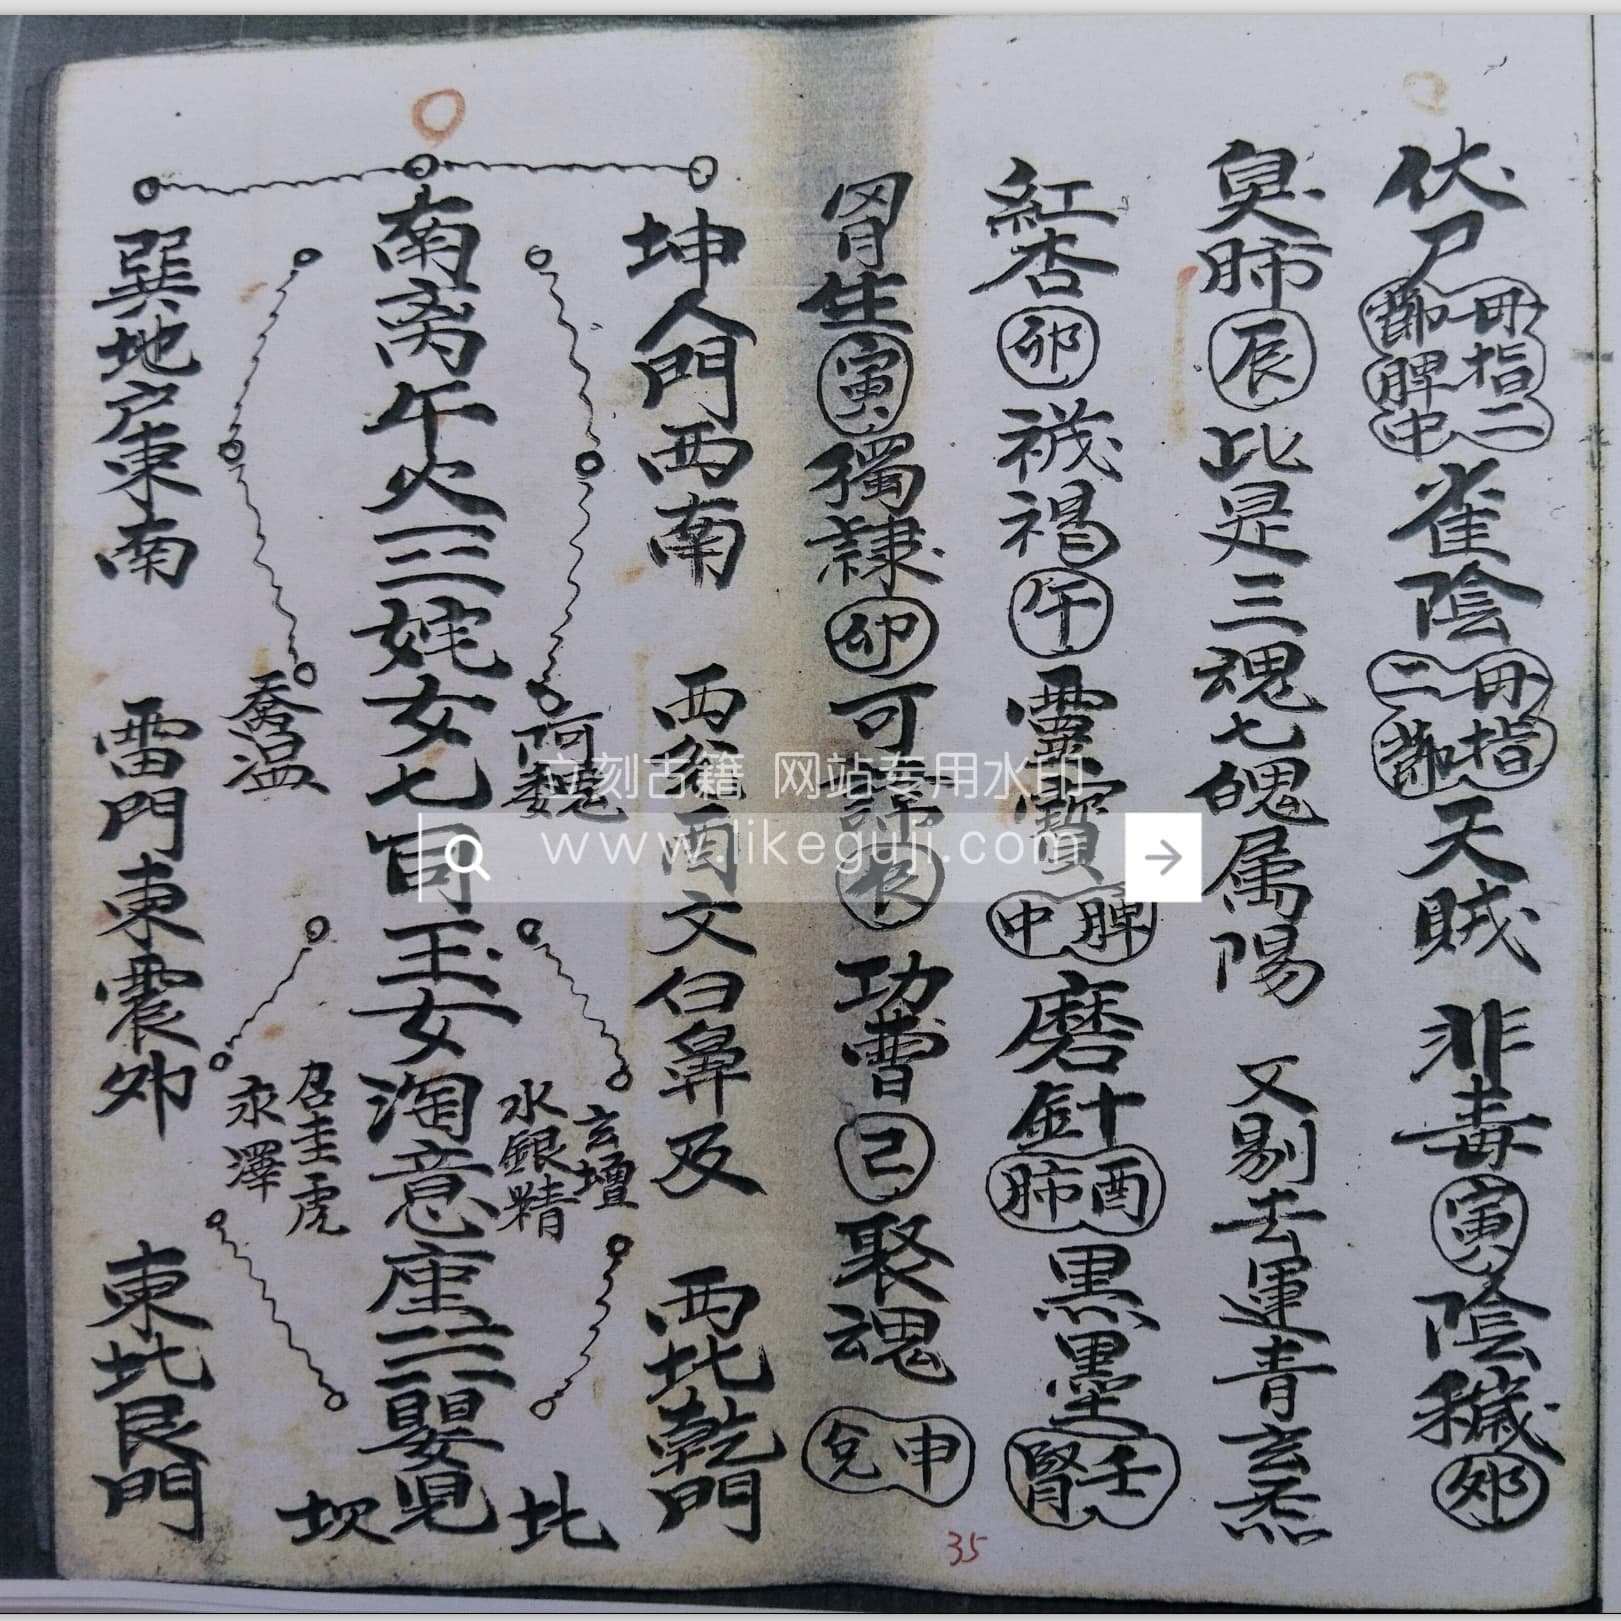 伏尸
毋指二
節脾中
雀陰
毋指
二節
天賊 非毒
寅
陰穢
卯
臭肺
辰
此是三魂七魄属陽 又剔去運青玄炁
紅杏
卯
午
靈寶
脾中
磨針
酉肺
黑
壬腎
胃生
寅
獨隸
卯
可
功曹
己
聚魂
申兌
35
坤人門西南
西
酉文白鼻及
西北乾門
阿魏
玄壇
水銀精
北
南离午火三姹女七司玉女淘意座三嬰児
喬温
召圭虎
永澤
坎
巽地户東南
雷門東震卯
東北艮門
立刻古籍 网站专用水印
www.likeguji.com